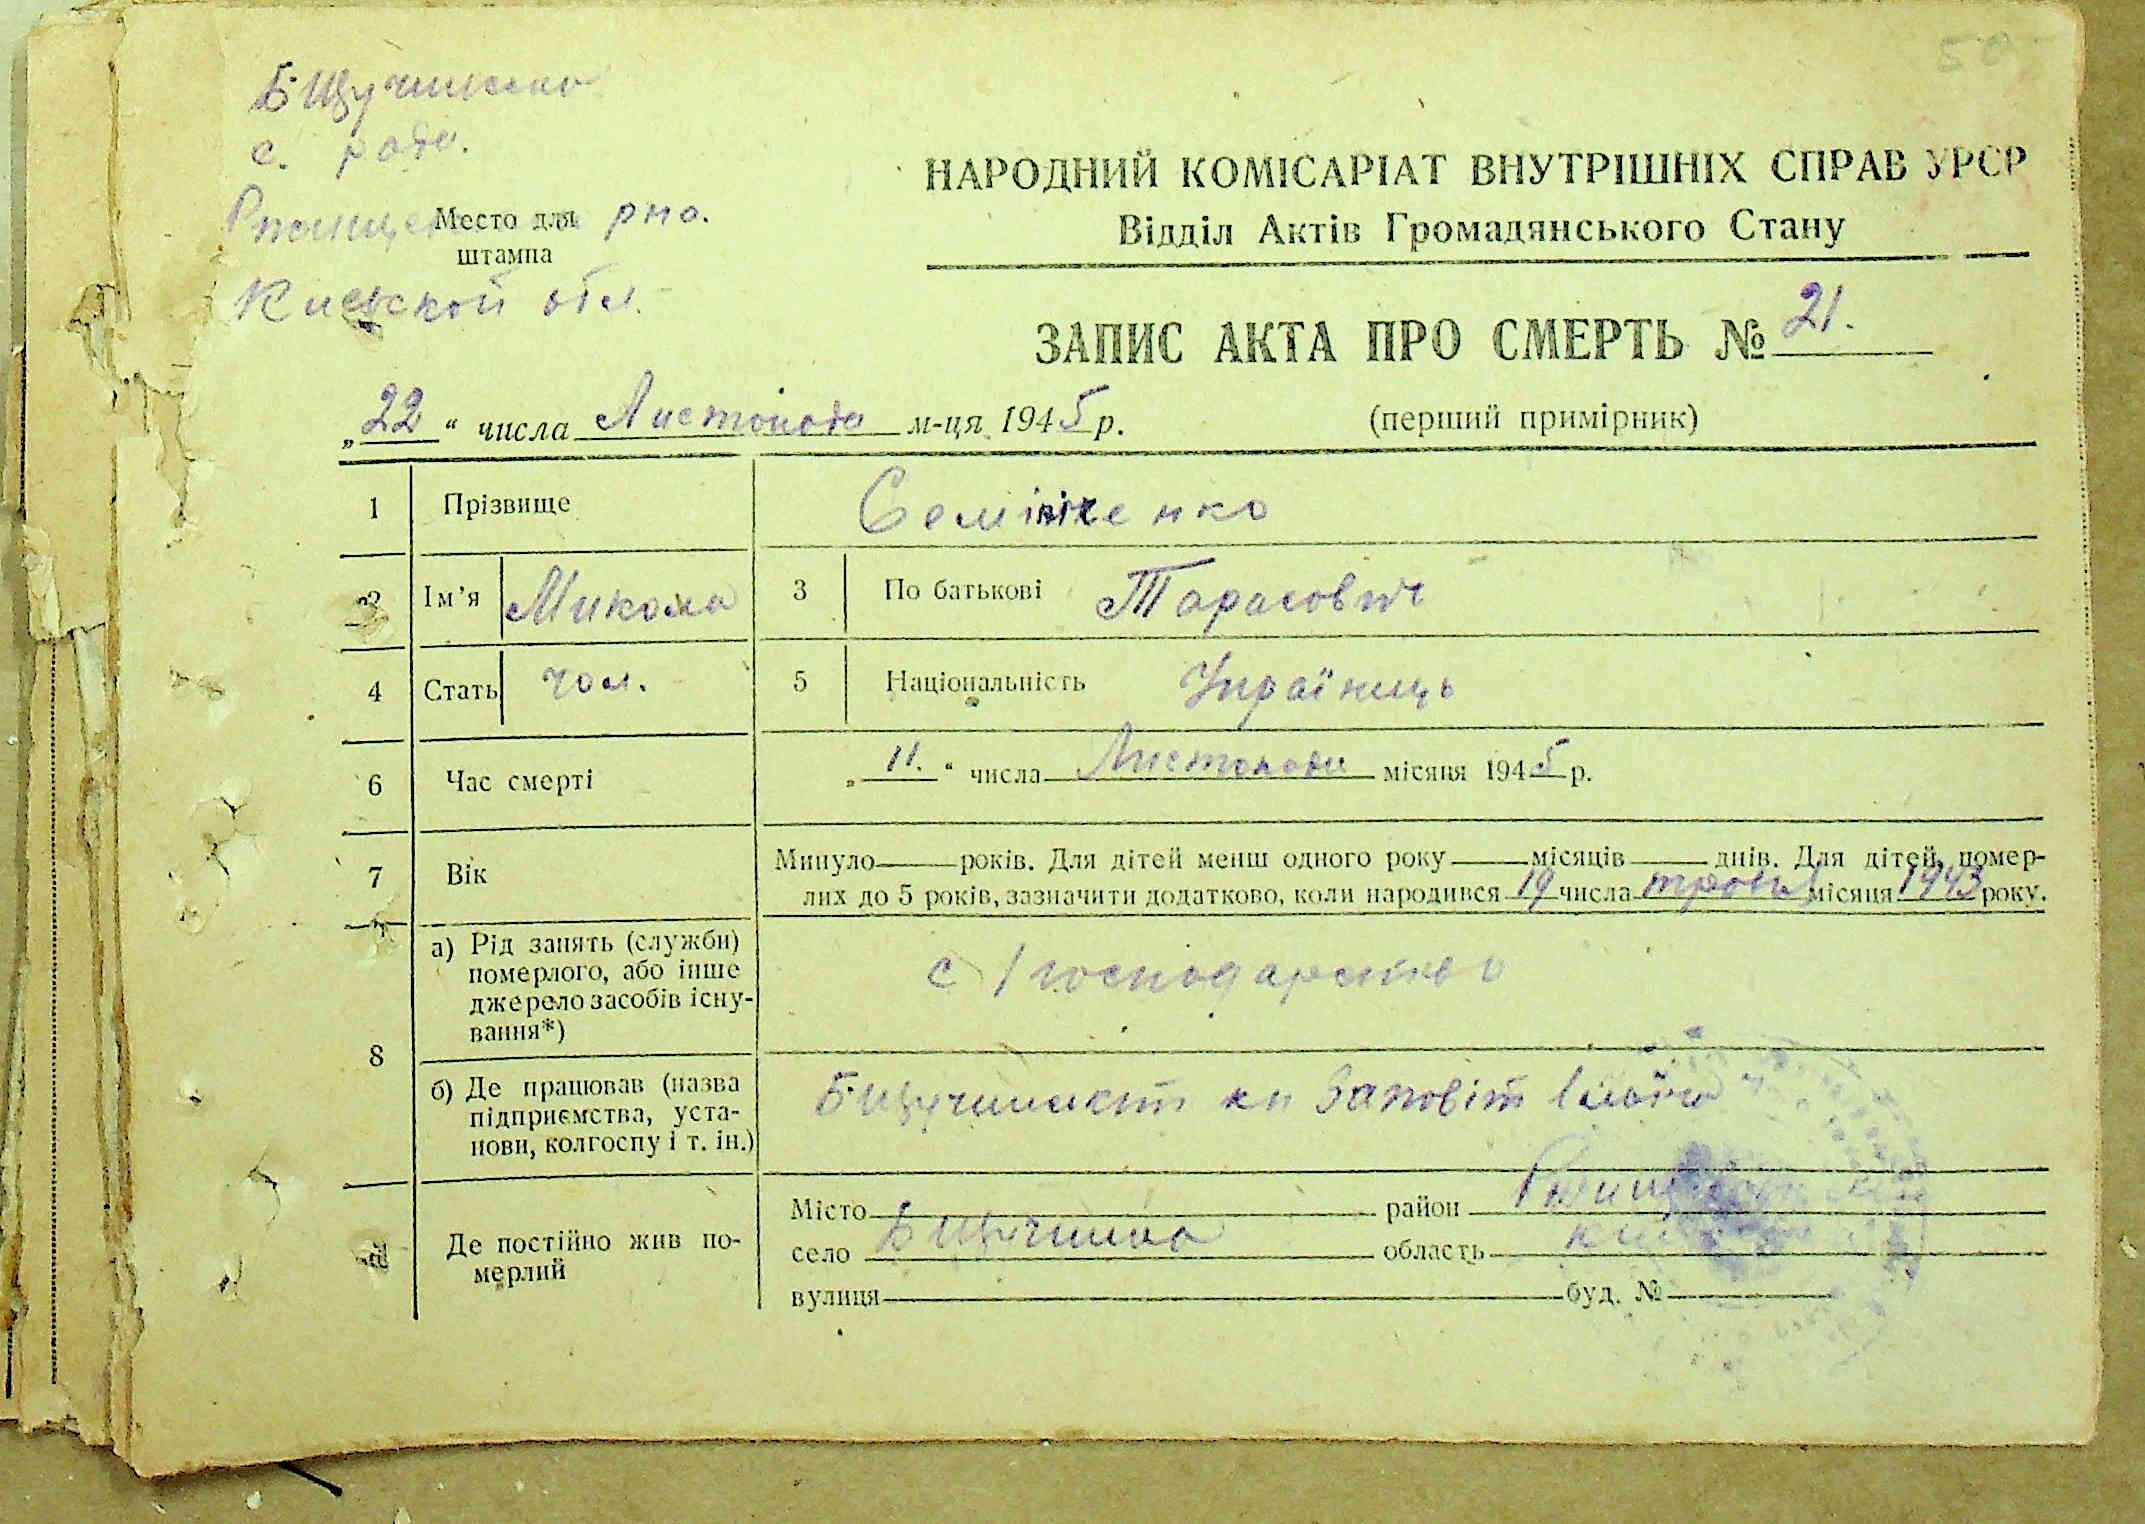 50
Б Щучинка
с. рада.
Ржищевск рна.
Место для
штампа
Киевской обл.
НАРОДНИЙ КОМІСАРІАТ ВНУТРІШНІХ СПРАВ УРСР
Відділ Актів Громадянського Стану
ЗАПИС АКТА ПРО СМЕРТЬ № 21.
„22“ числа Листопада м-ця 1945 р.
(перший примірник)
1 Прізвище
2 Ім’я Микола 3 По батькові Тарасович
4 Стать чол. 5 Національність Українець
6 Час смерті „11.“ числа Листопада місяця 1945 р.
7 Вік Минуло року. Для дітей менш одного року місяців днів. Для дітей, помер-
лих до 5 років, зазначити додатково, коли народився 19 числа травня місяця 1943 року.
8 а) Рід занять (служби)
померлого, або інше
джерело засобів існу-
вання*)
с/господарство
б) Де працював (назва
підприємства, уста-
нови, колгоспу і т. ін.)
Б Щучинкский кп Заповіт Ілліча"
Де постійно жив по-
мерлий
Місто район Ржищ
село Б Щучинка область
вулиця буд. №